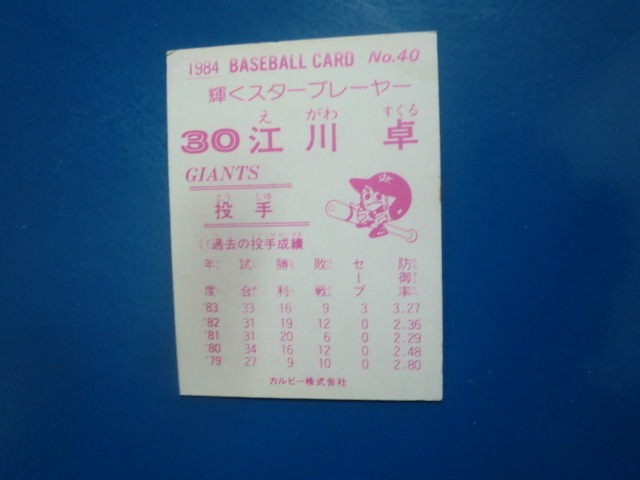 1984 BASEBALL CARD No.40
輝くスタープレーヤー
え がわ すぐる
30 江川 卓
GIANTS
とう しゅ
投手
過去の投手成績
年度 試合 勝利 敗戦 セーブ 防御率
'83 33 16 9 3 3.27
'82 31 19 12 0 2.36
'81 31 20 6 0 2.29
'80 34 16 12 0 2.48
'79 27 9 10 0 2.80
カルビー株式会社